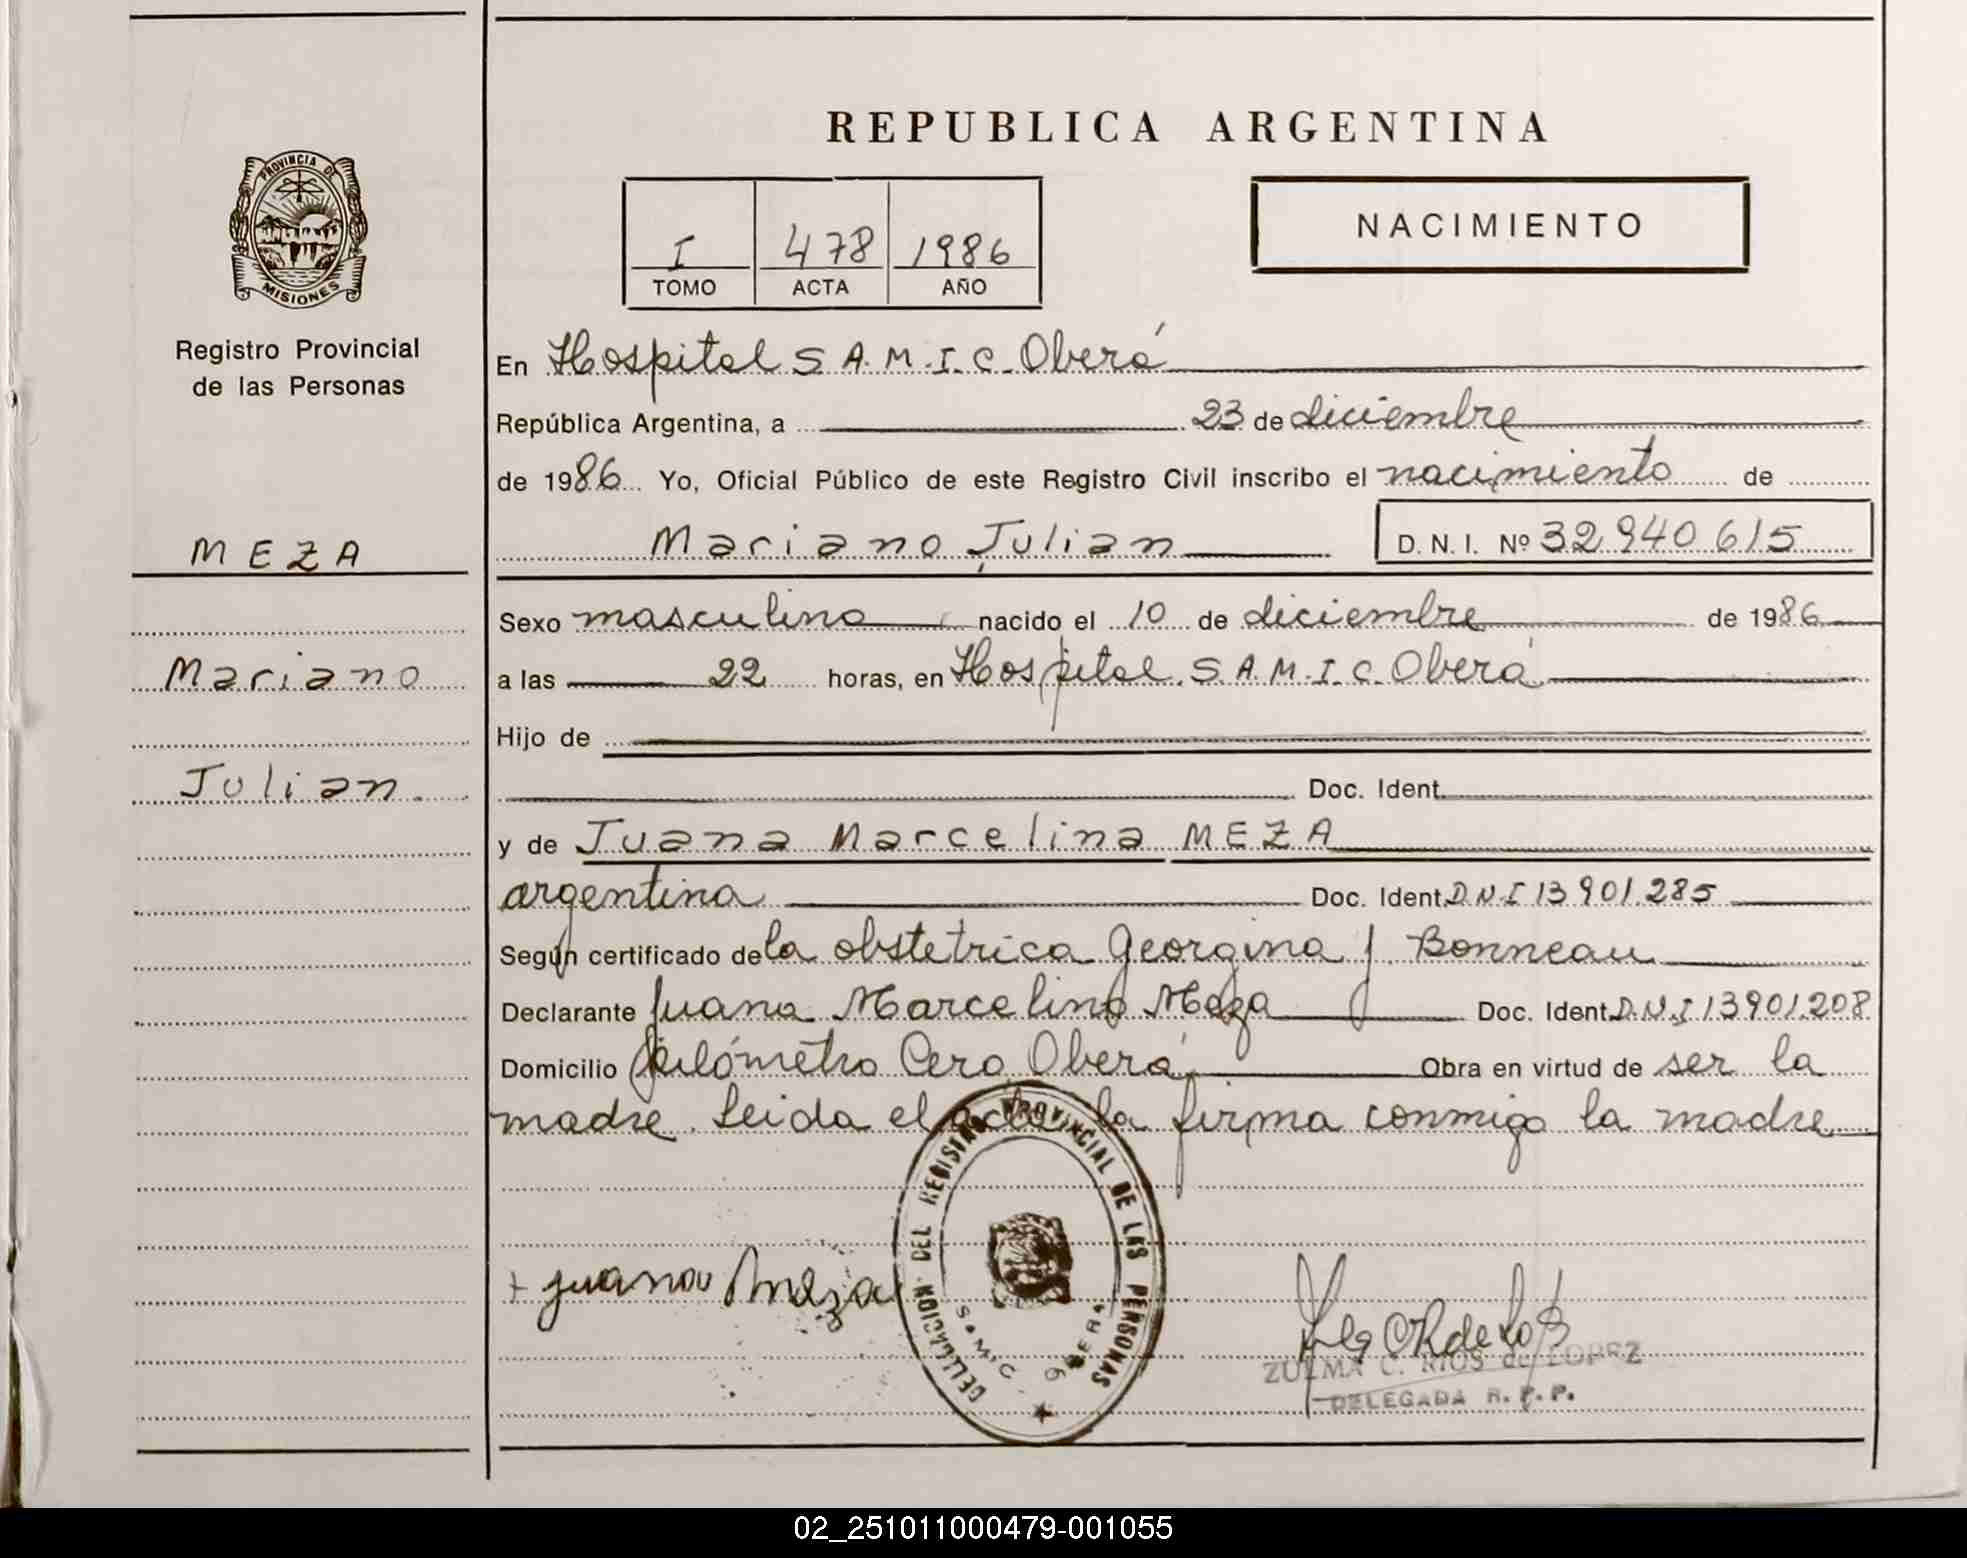 REPUBLICA ARGENTINA
PROVINCIA DE
MISIONES
Registro Provincial
de las Personas
MEZA
Mariano
Julian
I 478 1986
TOMO ACTA AÑO
NACIMIENTO
En Hospital S A.M.I.C. Oberá
República Argentina, a 23 de diciembre
de 1986 Yo, Oficial Público de este Registro Civil inscribo el nacimiento de
Mariano Julian D.N.I. Nº 32940615
Sexo masculino nacido el 10 de diciembre de 1986
a las 22 horas, en Hospital S A.M.I.C. Oberá
Hijo de
Doc. Ident.
y de Juana Marcelina MEZA
argentina Doc. Ident. D.N.I 13901.285
Según certificado de la obstetrica Georgina J. Bonneau
Declarante Juana Marcelina Meza Doc. Ident. D.N.I 13901.208
Domicilio kilómetro Cero Oberá Obra en virtud de ser la
madre. Leida el acta la firma conmigo la madre
DELEGACION DEL REGISTRO PROVINCIAL DE LAS PERSONAS
S.A.M.I.C. OBERA
+ Juana Meza
ZULMA C. RIOS de LOPEZ
DELEGADA R. P. P.
02_251011000479-001055